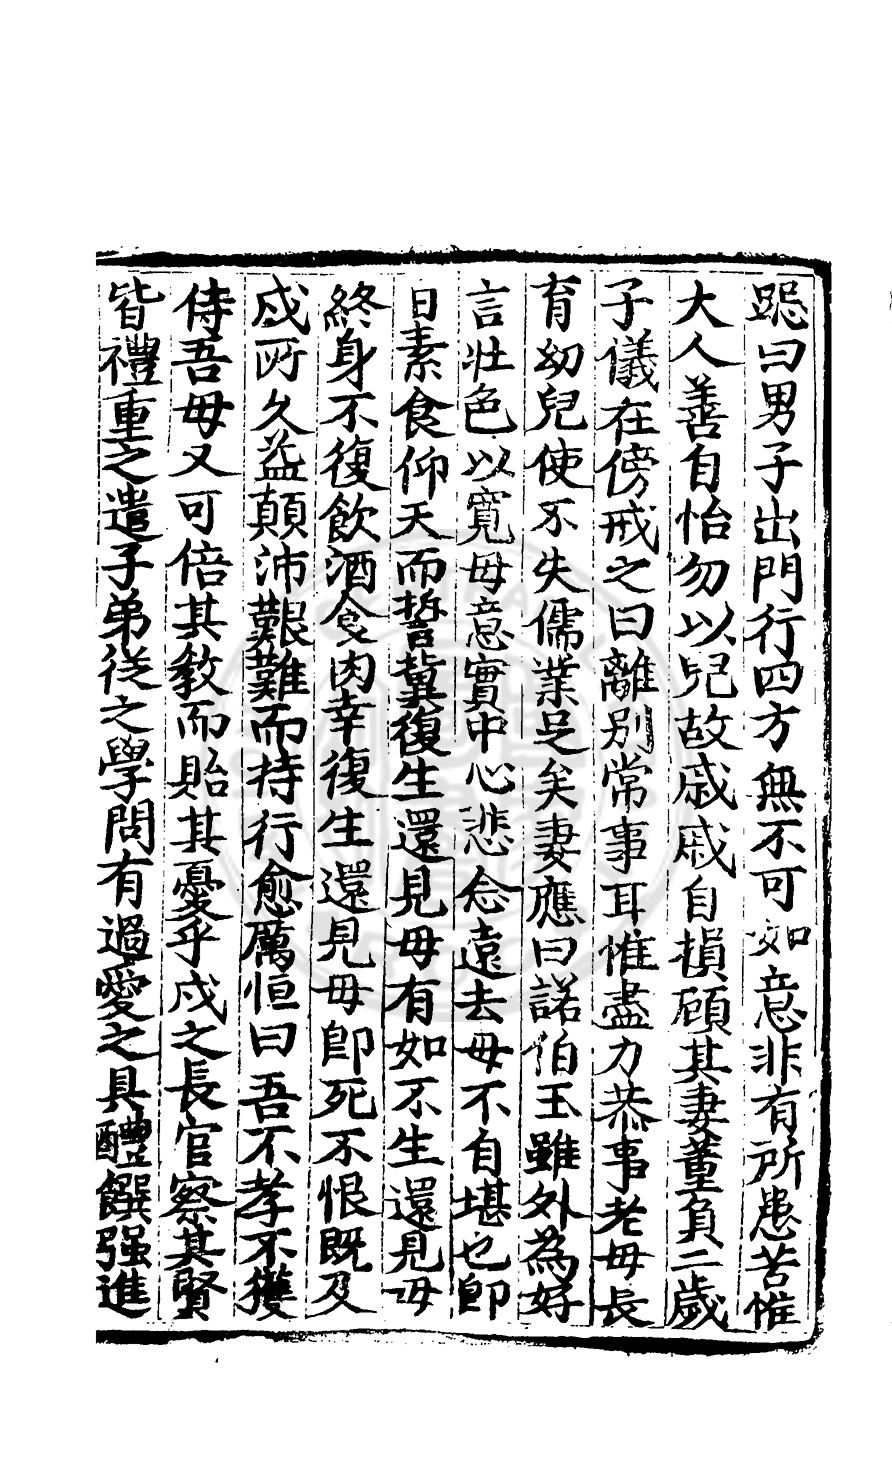 跽曰男子出門行四方無不可如意非有所患苦惟
大人善自怡勿以兒故戚戚自損顧其妻董負二歲
子儀在傍戒之曰離别常事耳惟盡力恭事老母長
育幼兒使不失儒業足矣妻應曰諾伯玉雖外為好
言壯色以寬母意實中心悲念遠去母不自堪也卽
日素食仰天而誓冀復生還見母有如不生還見母
終身不復飲酒食肉幸復生還見母卽死不恨既及
戍所久益顛沛艱難而持行愈厲恒曰吾不孝不獲
侍吾母又可倍其教而貽其憂乎戍之長官察其賢
皆禮重之遣子弟從之學問有過愛之具醴饌强進